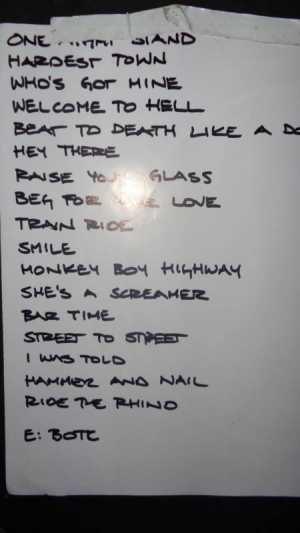 ONE STAND
HARDEST TOWN
WHO'S GOT MINE
WELCOME TO HELL
BEAT TO DEATH LIKE A DO
HEY THERE
RAISE YOUR GLASS
BEG FOR LOVE
TRAIN RIDE
SMILE
MONKEY BOY HIGHWAY
SHE'S A SCREAMER
BAR TIME
STREET TO STREET
I WAS TOLD
HAMMER AND NAIL
RIDE THE RHINO
E: BOTC